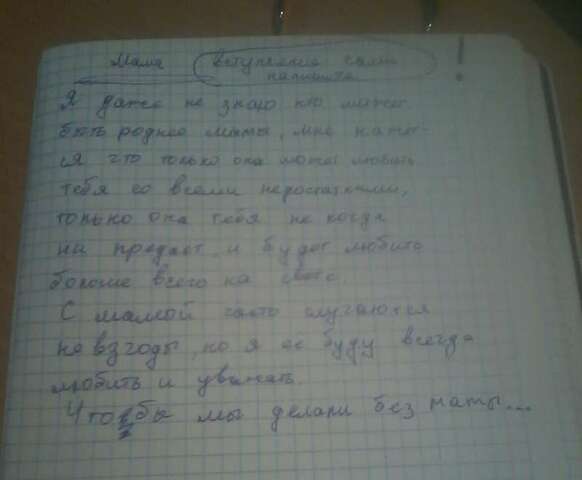 Мама вступление сами напишите !
Я даже не знаю кто может
быть роднее мамы, мне кажет-
ся что только она может любить
тебя со всеми недостатками,
только она тебя не когда
ни предаст, и будет любить
больше всего на свете.
С мамой часто случаются
невзгоды, но я ее буду всегда
любить и уважать.
Что бы мы делали без мамы...